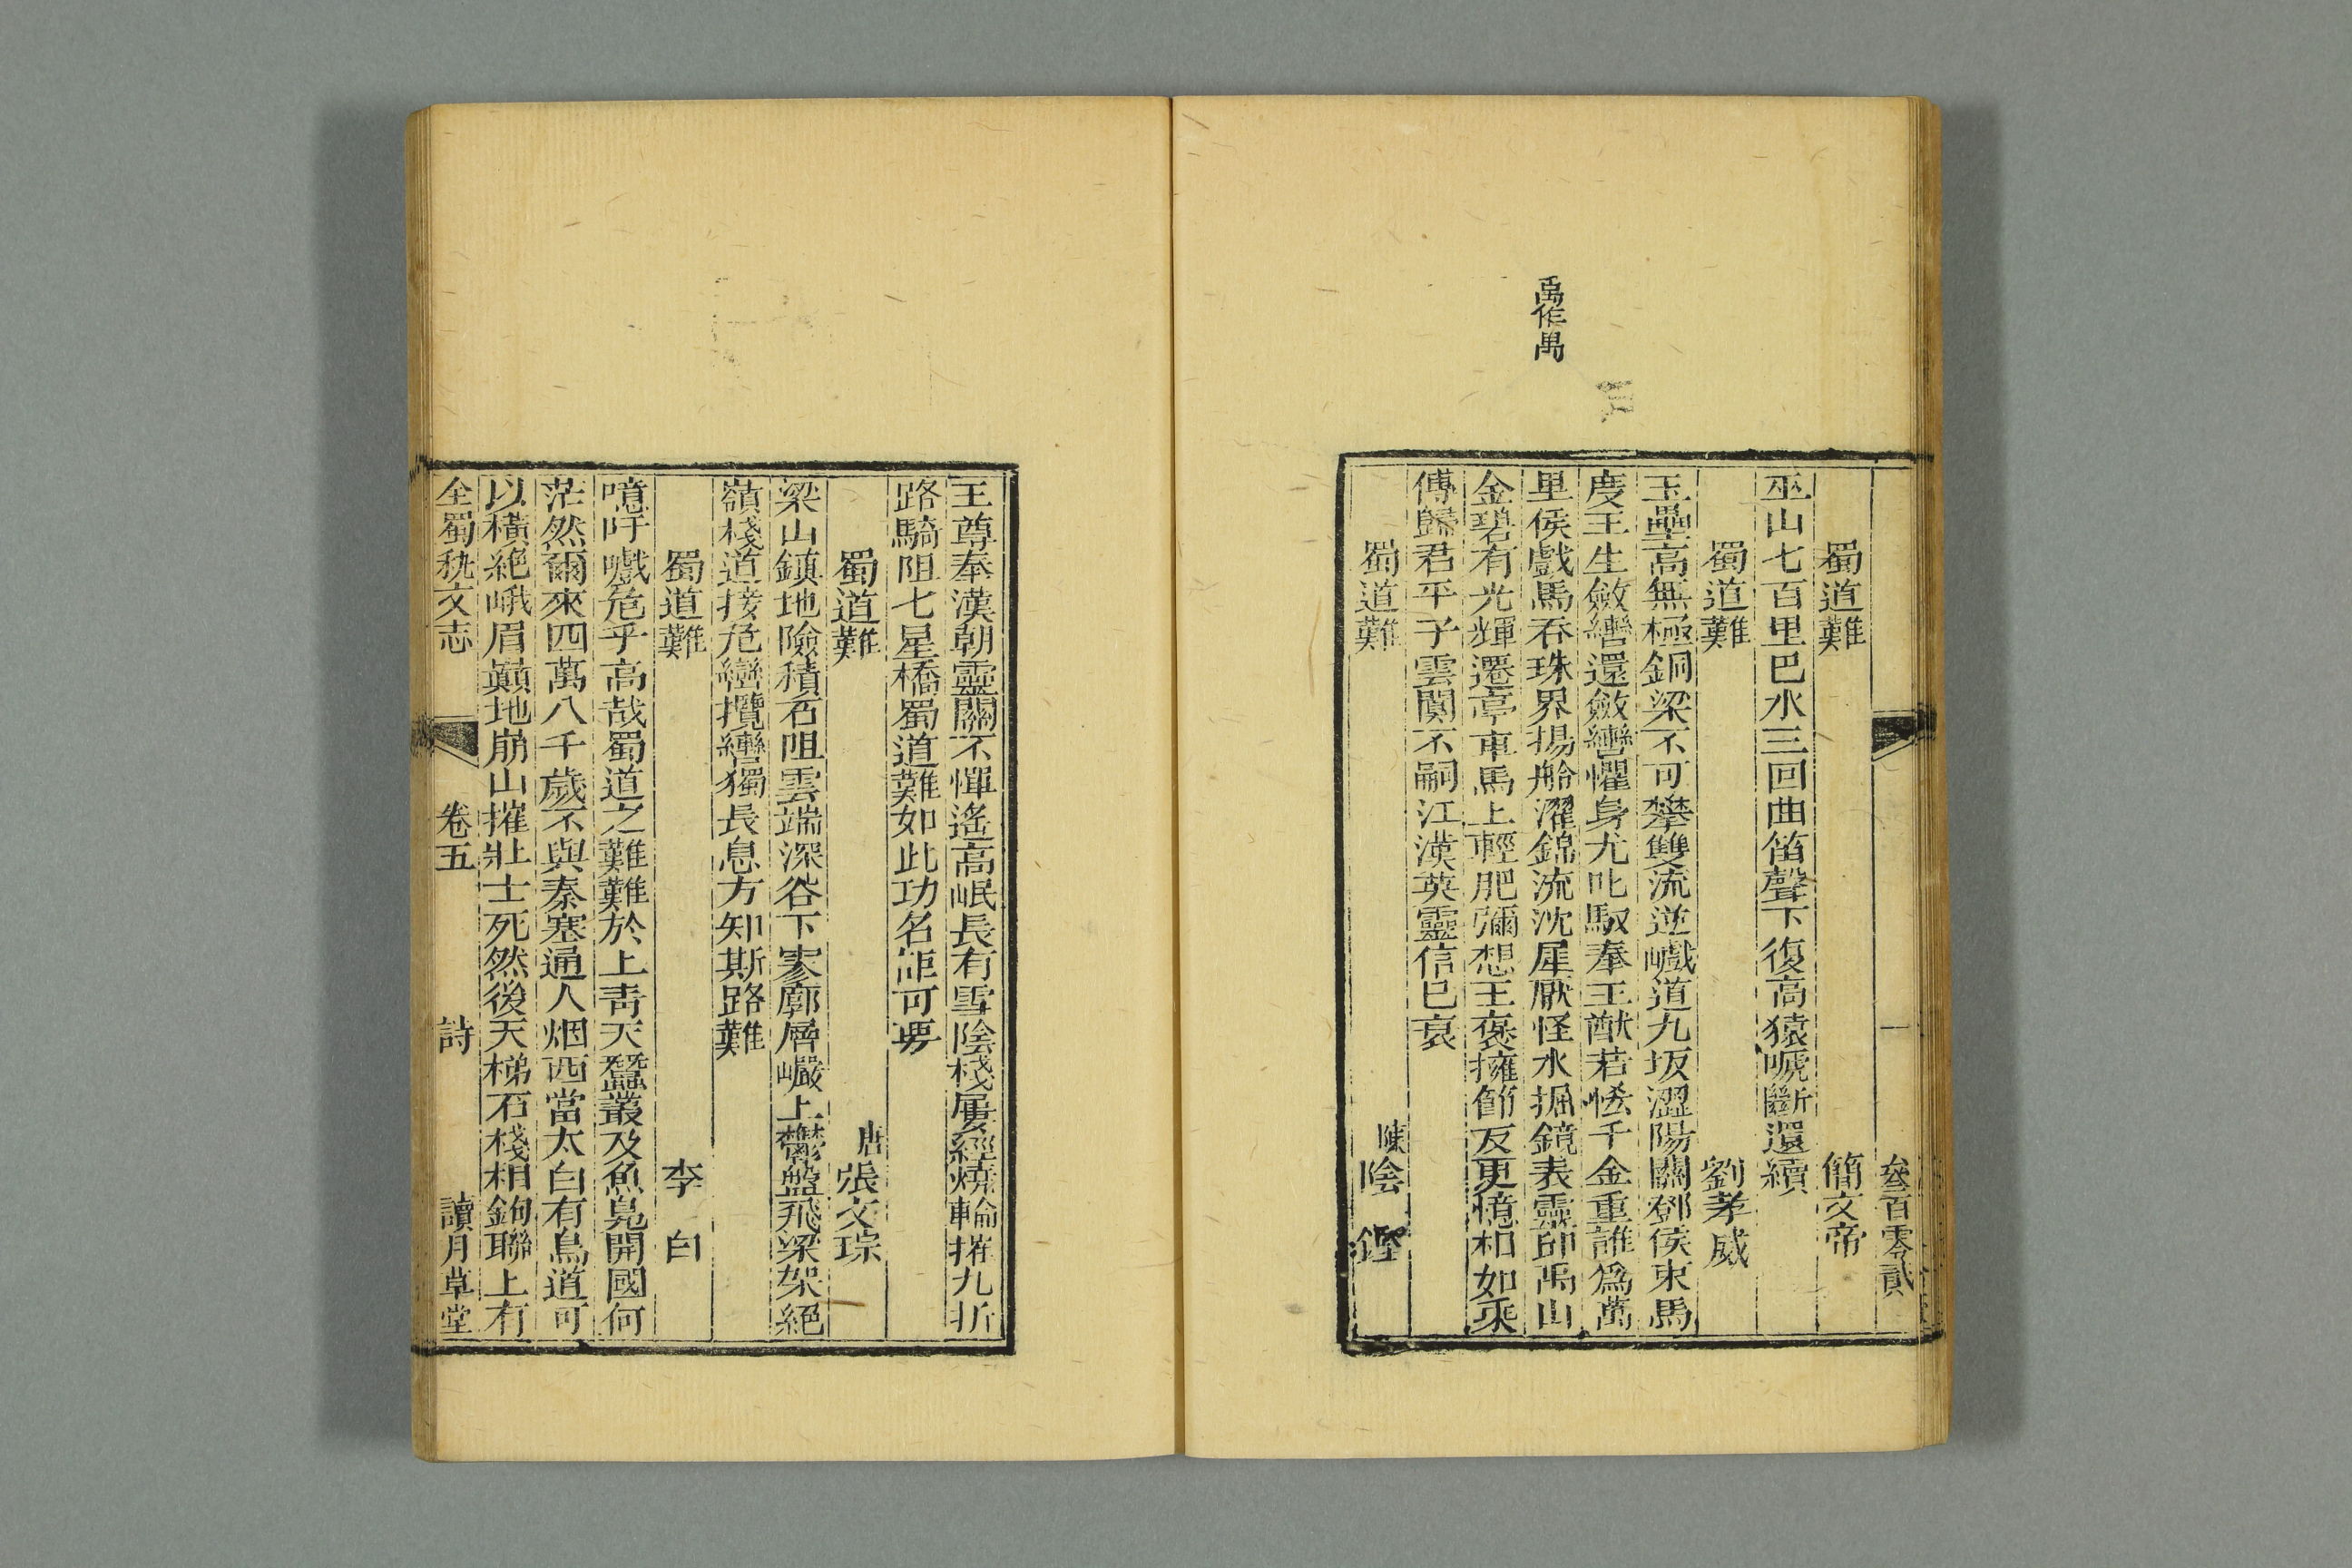 一 叄百零貳
蜀道難 簡文帝
巫山七百里巴水三回曲笛聲下復高猿嗁斷還續
蜀道難 劉孝威
玉壘高無極銅梁不可攀雙流逆巇道九坂澀陽關鄧侯束馬
度王生斂轡還斂轡懼身尤叱馭奉王猷若悋千金重誰爲萬
里侯戲馬吞珠界揚舲濯錦流沈犀厭怪水掘鏡表靈邱禹山
金碧有光輝遷亭車馬上輕肥彌想王褒擁節反更憶相如乘
傳歸君平子雲闃不嗣江漢英靈信已衰
蜀道難 陳陰 鏗
禹作禺
王尊奉漢朝靈關不憚遙高岷長有雪陰棧屢經燒輪摧九折
路騎阻七星橋蜀道難如此功名詎可要
蜀道難 唐張文琮
梁山鎮地險積石阻雲端深谷下寥廓層巖上鬱盤飛梁架絕
嶺棧道接危巒攬轡獨長息方知斯路難
蜀道難 李 白
噫吁巇危乎高哉蜀道之難難於上青天蠶叢及魚鳧開國何
茫然爾來四萬八千歲不與秦塞通人烟西當太白有鳥道可
以橫絕峨眉巔地崩山摧壯士死然後天梯石棧相鉤聯上有
全蜀秇文志 卷五 詩 讀月草堂